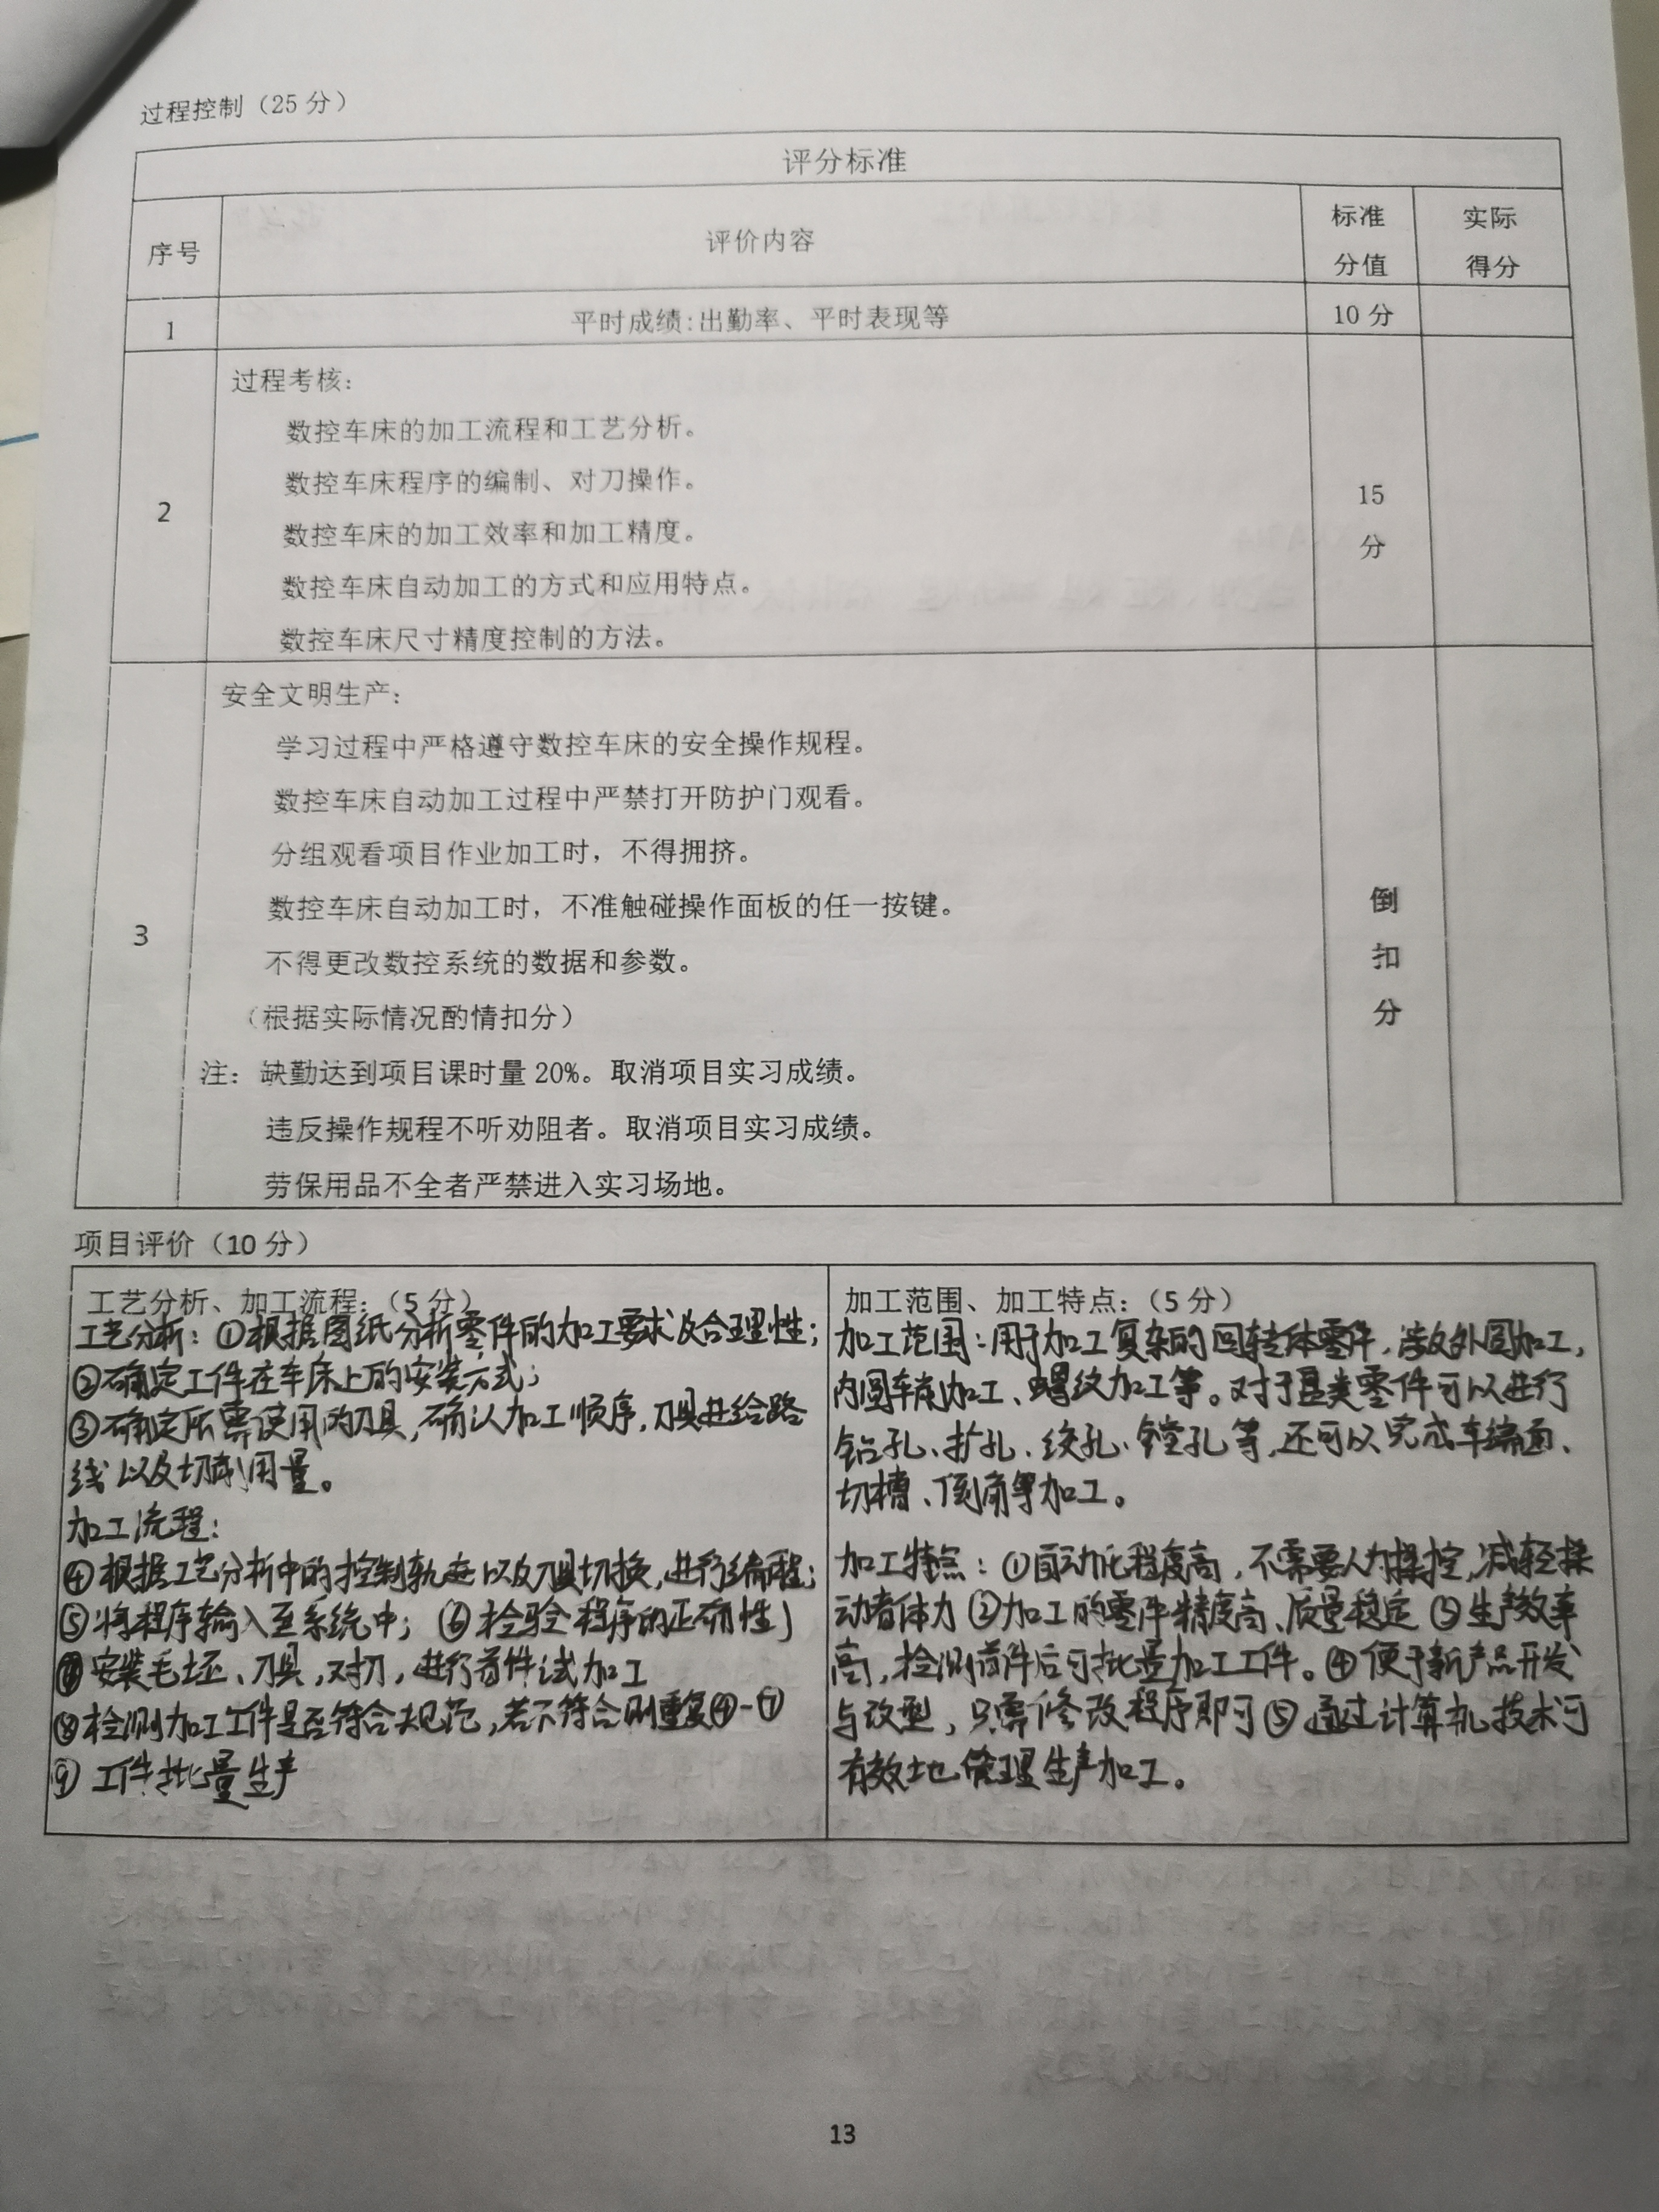 过程控制（25 分）
评分标准
序号 评价内容 标准分值 实际得分
1 平时成绩:出勤率、平时表现等 10 分
2 过程考核: 15 分
数控车床的加工流程和工艺分析。
数控车床程序的编制、对刀操作。
数控车床的加工效率和加工精度。
数控车床自动加工的方式和应用特点。
数控车床尺寸精度控制的方法。
3 安全文明生产: 倒扣分
学习过程中严格遵守数控车床的安全操作规程。
数控车床自动加工过程中严禁打开防护门观看。
分组观看项目作业加工时，不得拥挤。
数控车床自动加工时，不准触碰操作面板的任一按键。
不得更改数控系统的数据和参数。
（根据实际情况酌情扣分）
注：缺勤达到项目课时量 20%。取消项目实习成绩。
违反操作规程不听劝阻者。取消项目实习成绩。
劳保用品不全者严禁进入实习场地。
项目评价（10 分）
工艺分析、加工流程:（5 分）
工艺分析：①根据图纸分析零件的加工要求及合理性；
②确定工件在车床上的安装方式；
③确定所需使用的刀具，确认加工顺序，刀具进给路
线以及切削用量。
加工流程：
④根据工艺分析中的控制轨迹以及刀具切换，进行编程；
⑤将程序输入至系统中；⑥检验程序的正确性；
⑦安装毛坯、刀具，对刀，进行首件试加工
⑧检测加工工件是否符合规范，若不符合则重复④-⑦
⑨ 工件批量生产
加工范围、加工特点:（5 分）
加工范围：用于加工复杂的回转体零件，涉及外圆加工，
内圆车削加工、螺纹加工等。对于盘类零件可以进行
钻孔、扩孔、绞孔、镗孔等，还可以完成车端面、
切槽、倒角等加工。
加工特点：①自动化程度高，不需要人为操控，减轻操
动者体力 ②加工的零件精度高、质量稳定 ③生产效率
高，检测首件后可批量加工工件。④便于新产品开发
与改型，只需修改程序即可⑤通过计算机技术可
有效地管理生产加工。
13